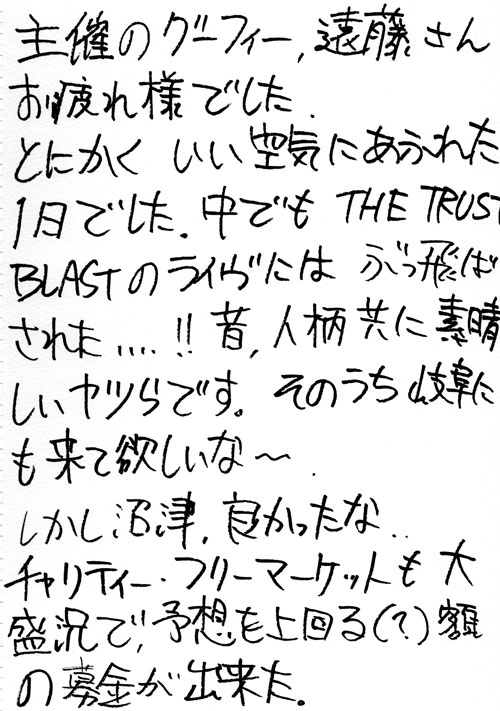 主催のグーフィー, 遠藤さん
お疲れ様でした.
とにかく いい空気にあふれた
1日でした. 中でも THE TRUST
BLASTのライヴには ぶっ飛ば
された....!! 音, 人柄共に素晴
しいヤツらです。そのうち岐阜に
も来て欲しいな〜.
しかし沼津, 良かったな..
チャリティー・フリーマーケットも大
盛況で, 予想を上回る(?)額
の募金が出来た.